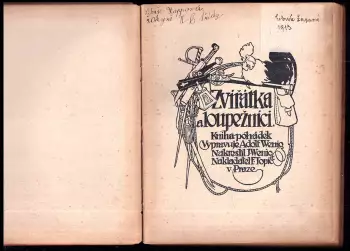 Zvířátka
a loupežníci.
Kniha pohádek
Vypravuje Adolf Wenig
Nakreslil J. Wenig
Nakladatel F. Topič
v Praze.
1913